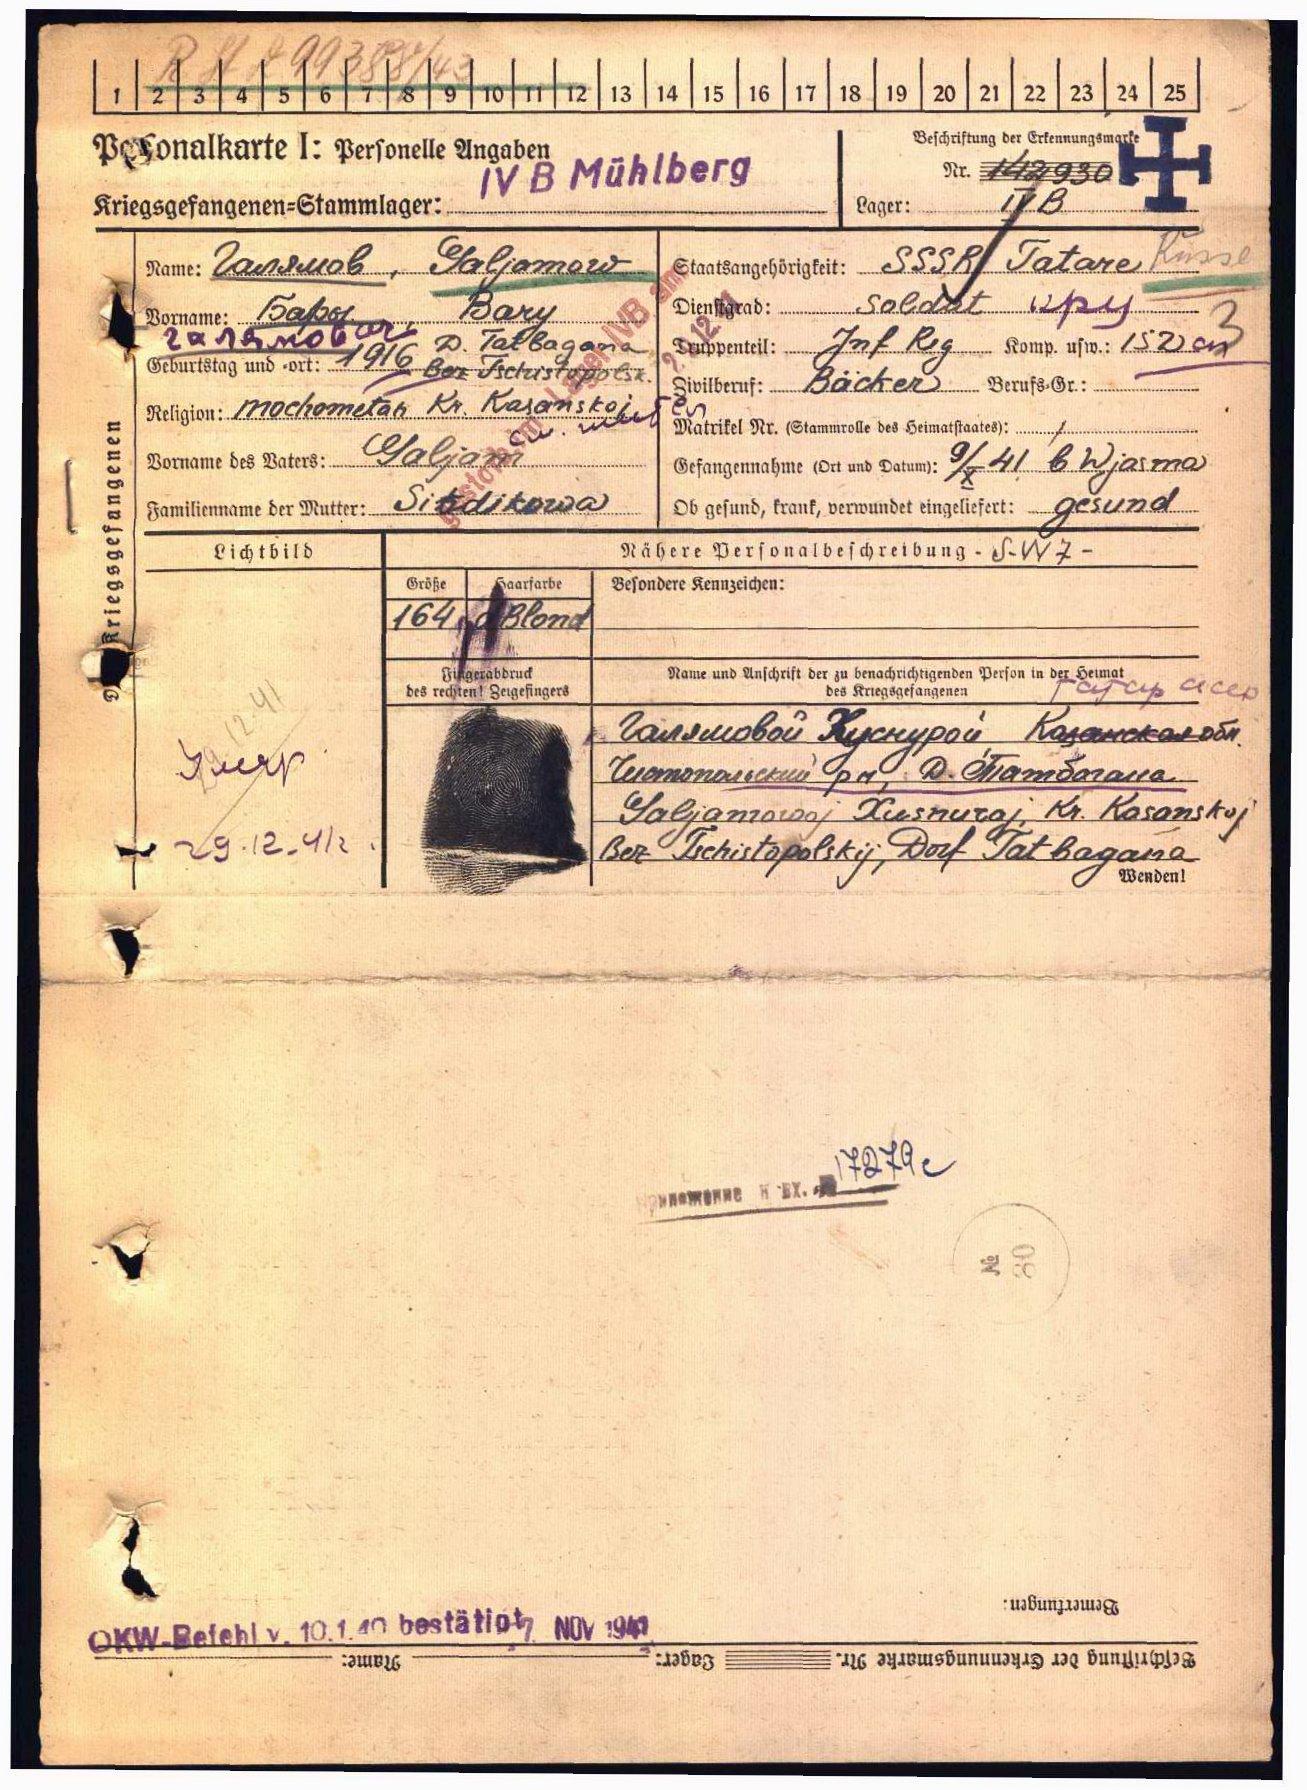 R St Z 99388/43
1 2 3 4 5 6 7 8 9 10 11 12 13 14 15 16 17 18 19 20 21 22 23 24 25
Personalkarte I: Personelle Angaben
IV B Mühlberg
Kriegsgefangenen=Stammlager:
Beschriftung der Erkennungsmarke
Nr. 142930
Lager: IV B
Name: Галямов, Galjamow
Vorname: Бары Bary
Галямович
D. Tatbagana
Geburtstag und -ort: 1916 Bez Tschistopolsk.
Religion: mochometan Kr. Kasanskoj
Vorname des Vaters: Galjam
Familienname der Mutter: Sitdikowa
Staatsangehörigkeit: SSSR Tatare Russe
Dienstgrad: Soldat кру
3
Truppenteil: Inf Reg Komp. usw.: 152
Zivilberuf: Bäcker Berufs-Gr.:
Matrikel Nr. (Stammrolle des Heimatstaates): /
Gefangennahme (Ort und Datum): 9/X 41 b Wjasma
Ob gesund, krank, verwundet eingeliefert: gesund
Des Kriegsgefangenen
Lichtbild
Nähere Personalbeschreibung - S-W 7 -
Größe Haarfarbe Besondere Kennzeichen:
164 d Blond
Fingerabdruck
des rechten! Zeigefingers
Name und Anschrift der zu benachrichtigenden Person in der Heimat
des Kriegsgefangenen
Татар асср
Галямовой Хуснурой Казанская обл.
Чистопольский рн, Д. Татбагана
Galjamowoj Xusnuraj, Kr. Kasanskoj
Bez Tschistopolskij, Dorf Tatbagana
Wenden!
29.12.41
Умер
29.12.41г.
17279с
Приложение к вх. №
№
80
Bemerkungen:
OKW-Befehl v. 10.1.40 bestätigt 7. NOV 1941
Beschriftung der Erkennungsmarke Nr. Lager: Name: